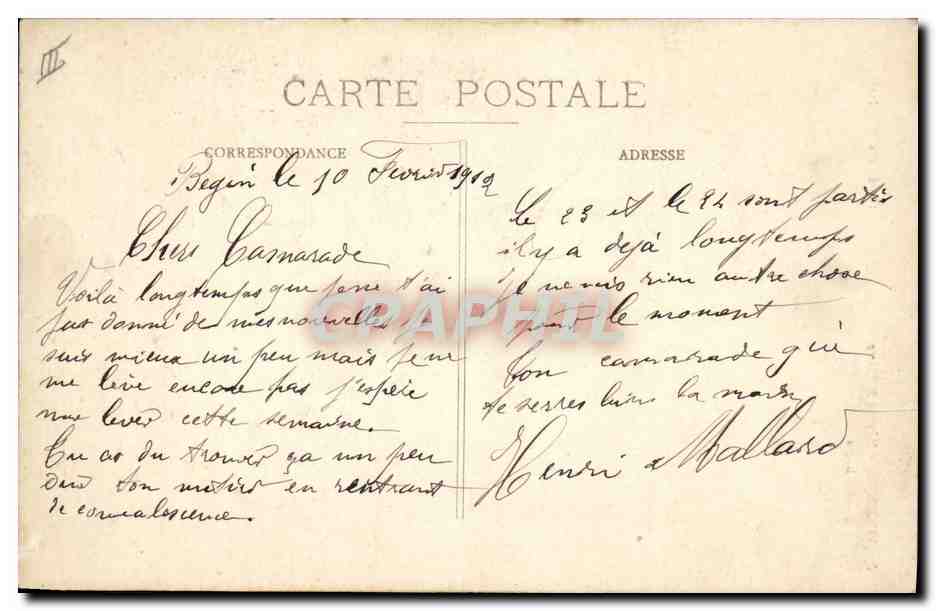 III
CARTE POSTALE
CORRESPONDANCE
ADRESSE
Begin le 10 Fevrier 1912
Chers Camarade
Voilà longtemps que je ne t'ai
pas donné de mes nouvelles je
suis mieux un peu mais je ne
me lève encore pas j'espère
me lever cette semaine.
Tu as du trouver ça un peu
dur ton métier en rentrant
de convalescence.
le 23 et le 24 sont partis
il y a dejà longtemps
Je ne vois rien autre chose
pour le moment
ton camarade qui
te serres bien la main
Henri Mallard
CPAPHIL